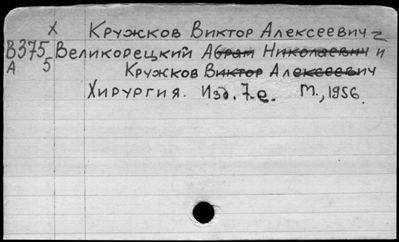 х Кружков Виктор Алексеевич 2
В375 Великорецкий Абрам Николаевич и
А 5 Кружков Виктор Алексеевич
Хирургия. Изд. 7-е. М., 1956